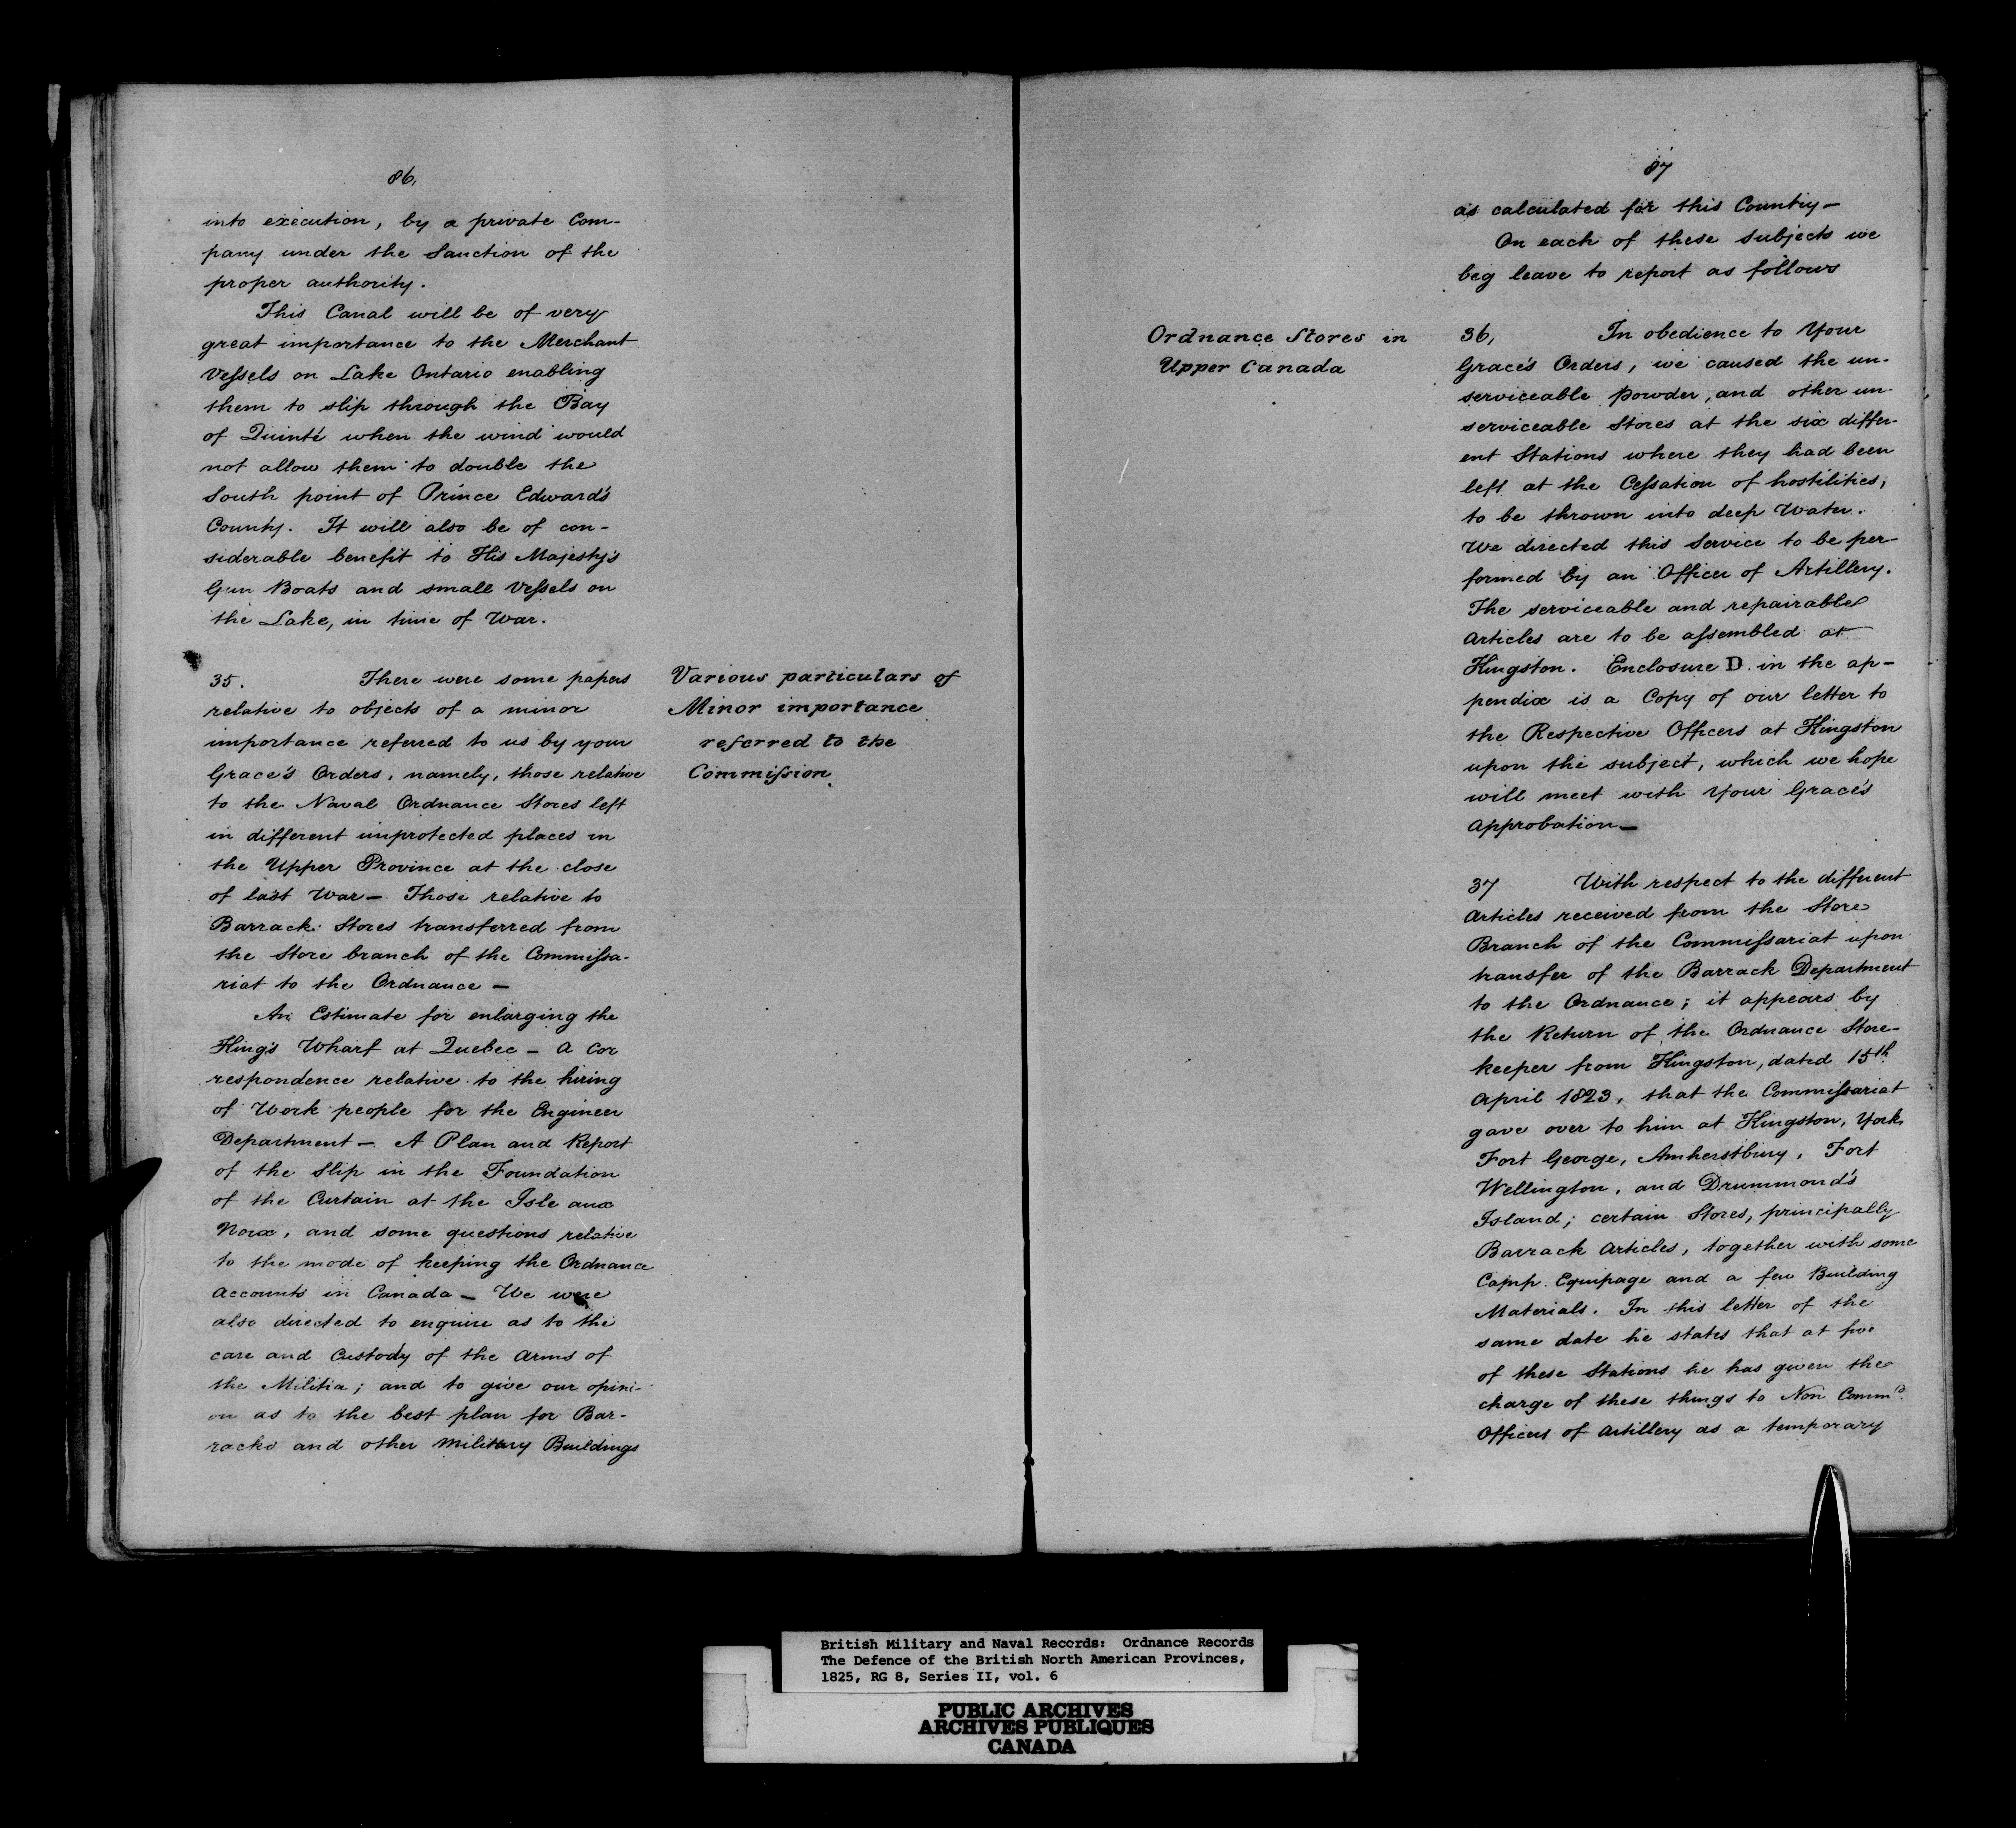 86,
into execution, by a private Com-
pany under the Sanction of the
proper authority.
This Canal will be of very
great importance to the Merchant
Vessels on Lake Ontario enabling
them to slip through the Bay
of Quinté when the wind would
not allow them to double the
South point of Prince Edward's
County. It will also be of con-
siderable benefit to His Majesty's
Gun Boats and small Vessels on
the Lake, in time of War.
35. There were some papers
relative to objects of a minor
importance referred to us by your
Grace's Orders, namely, those relative
to the Naval Ordnance Stores left
in different unprotected places in
the Upper Province at the close
of last War— Those relative to
Barrack Stores transferred from
the Store branch of the Commissa-
riat to the Ordnance —
An Estimate for enlarging the
King's Wharf at Quebec — A Cor
respondence relative to the hiring
of Work people for the Engineer
Department — A Plan and Report
of the Slip in the Foundation
of the Curtain at the Isle aux
Noix, and some questions relative
to the mode of keeping the Ordnance
Accounts in Canada — We were
also directed to enquire as to the
care and Custody of the Arms of
the Militia; and to give our opini-
on as to the best plan for Bar-
racks and other Military Buildings
Various particulars of
Minor importance
referred to the
Commission
87
as calculated for this Country —
On each of these Subjects we
beg leave to report as follows
Ordnance Stores in
Upper Canada
36, In obedience to Your
Grace's Orders, we caused the un-
serviceable Powder, and other un-
serviceable Stores at the six differ-
ent Stations where they had been
left at the Cessation of hostilities,
to be thrown into deep Water.
We directed this Service to be per-
formed by an Officer of Artillery.
The serviceable and repairable
Articles are to be assembled at
Kingston. Enclosure D. in the ap-
pendix is a Copy of our letter to
the Respective Officers at Kingston
upon the subject, which we hope
will meet with Your Grace's
Approbation —
37 With respect to the different
Articles received from the Store
Branch of the Commissariat upon
transfer of the Barrack Department
to the Ordnance; it appears by
the Return of the Ordnance Store-
keeper from Kingston, dated 15th
April 1823, that the Commissariat
gave over to him at Kingston, York,
Fort George, Amherstbury, Fort
Wellington, and Drummond's
Island; certain Stores, principally
Barrack Articles, together with some
Camp Equipage and a few Building
Materials. In this letter of the
same date he states that at five
of these Stations he has given the
charge of these things to Non Commd.
Officers of Artillery as a temporary
British Military and Naval Records: Ordnance Records
The Defence of the British North American Provinces,
1825, RG 8, Series II, vol. 6
PUBLIC ARCHIVES
ARCHIVES PUBLIQUES
CANADA